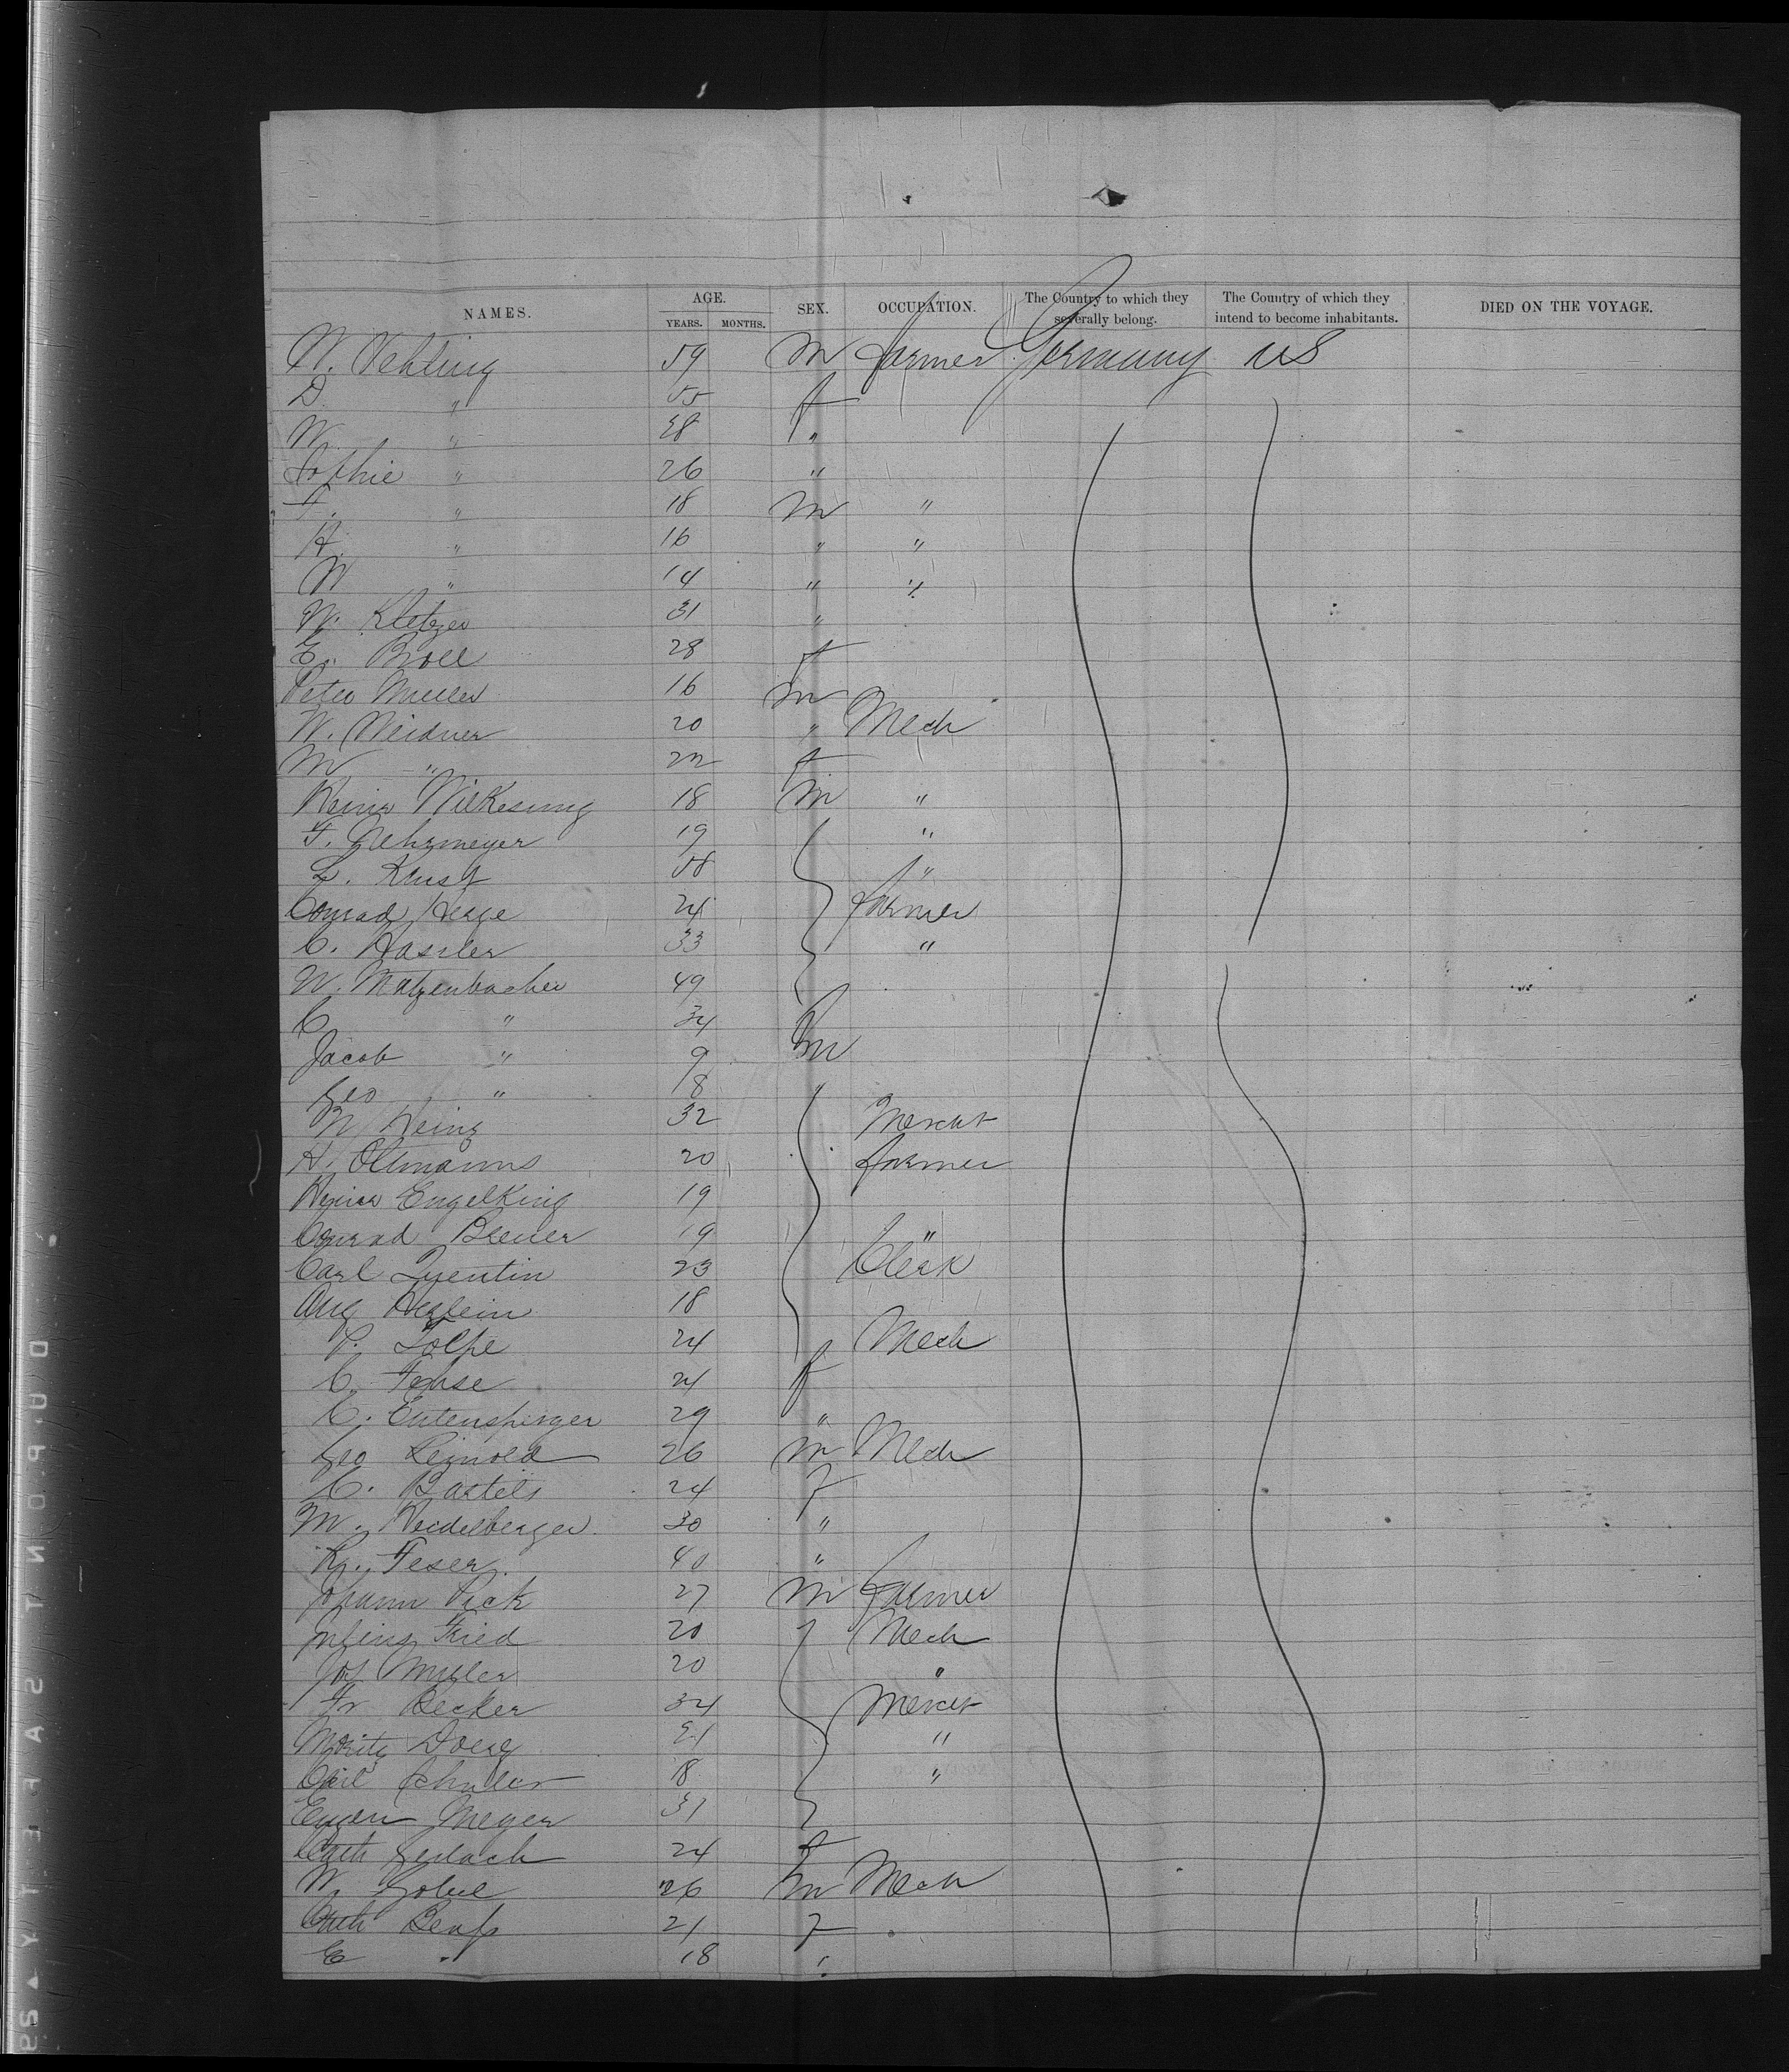 NAMES. AGE. SEX. OCCUPATION. The Country to which they severally belong. The Country of which they intend to become inhabitants. DIED ON THE VOYAGE.
YEARS. MONTHS.
59 m farmer Germany US
D. " 55 f
W. " 28 "
Sophie " 26 "
F. " 18 m "
H. " 16 " "
W " 14 " "
W. Kletzer 31 "
E. Broll 28 f
Peter Mueller 16 m
W. Weidner 20 " Mech
M " 22 f
Heinr Wilkesung 18 m "
F. Gehrmeyer 19 "
L. Kunst 58 "
Conrad Hesge 24 farmer
C. Hassler 33 "
W. Matzenbacher 49
C " 34 f
Jacob " 9 m
Geo " 8 "
N Heinz 32 Mercht
H. Oltmanns 20 farmer
Heinr Engelking 19
Conrad Breuer 19 "
Carl Quentin 23 Clerk
Aug 18
P. Tolpe 24 Mech
C. Fehse 21 f
C. Entensperger 29 "
Geo Reinold 26 m Mech
C. Bartels 24 f
M. Heidelberger 30 "
Feser 40 "
Johann Pick 27 m farmer
Fried 20 Mech
Jos Muller 20 "
Fr Becker 34 Mercht
Moritz 21 "
Schuler 18 "
Eugen Meyer 31
Cath Gerlach 24 f
W. Gobel 26 m Mech
Cath 21 f
E " 18 "
DUPONT SAFETY